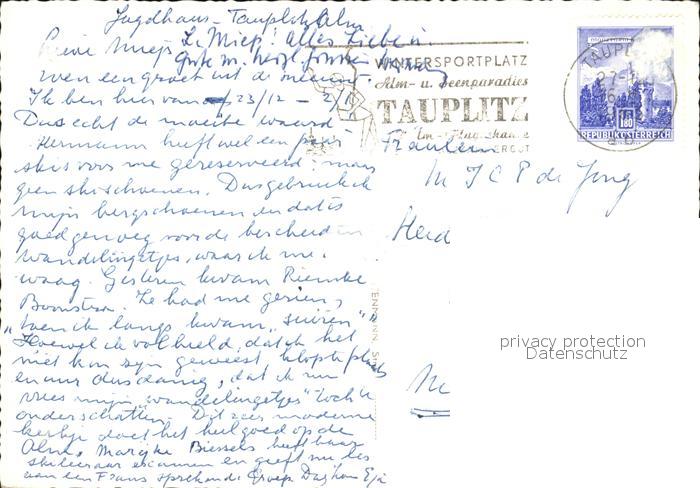 Jagdhaus-Tauplitz Alm
L. Miep! Alles Liebe u.
Lieve Miep,
Gute
even een groet uit de sneeuw.
Ik ben hier van 23/12 - 2/1
Dus echt de moeite waard
Hermann heeft wel een paar
ski's voor me gereserveerd: maar
geen skischoenen. Dus gebruik ik
mijn bergschoenen en dat is
goed genoeg voor de bescheiden
wandelingetjes, waar ik me
waag. Gisteren kwam Riemke
Boonstra. Ze had me gezien,
toen ik langs kwam "suizen"
Hoewel ik volhield, dat ik het
niet kon zijn geweest
en uur dusdanig, dat ik nu
vrees mijn "wandelingetjes" toch te
onderschatten. Dit zeer moderne
kerkje doet het heel goed op de
Alm. Marijke Biessels heeft haar
skileraar examen en geeft nu les
aan een Frans sprekende Groep. Dag hoor Eja
WINTERSPORTPLATZ
Alm- u. Seenparadies
TAUPLITZ
TAUPLITZ
1.80
REPUBLIK ÖSTERREICH
Fräulein
M J C P de Jong
privacy protection
Datenschutz